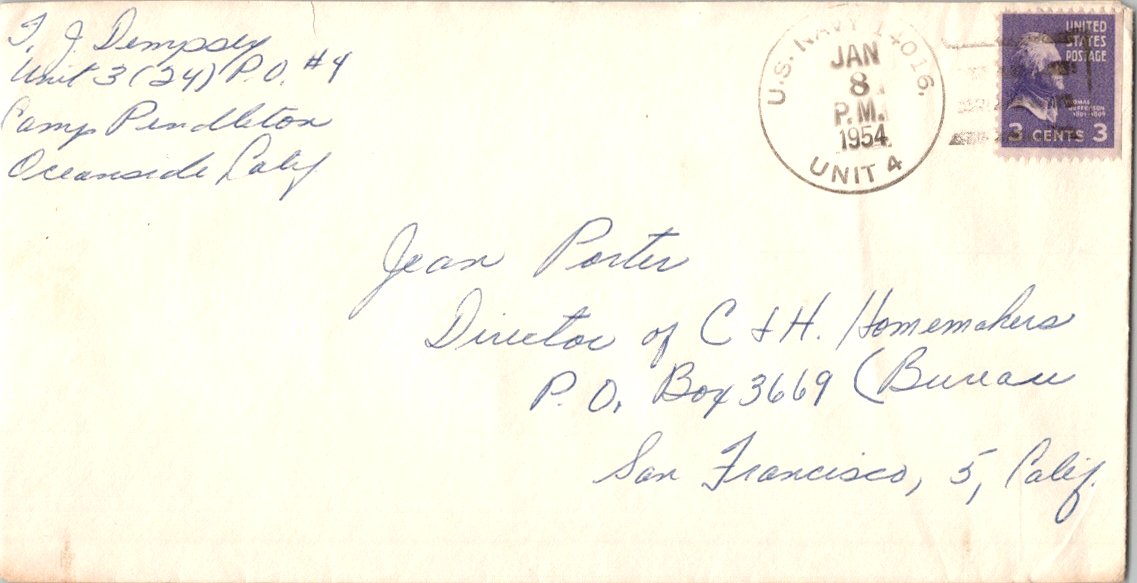 T. J. Dempsey
Unit 3 (24) P.O. #4
Camp Pendleton
Oceanside Calif
U.S. NAVY 14016.
JAN
8
P.M.
1954
UNIT 4
UNITED
STATES
POSTAGE
THOMAS
JEFFERSON
1801-1809
3 CENTS 3
Jean Porter
Director of C & H. Homemakers
P.O. Box 3669 (Bureau
San Francisco, 5, Calif.